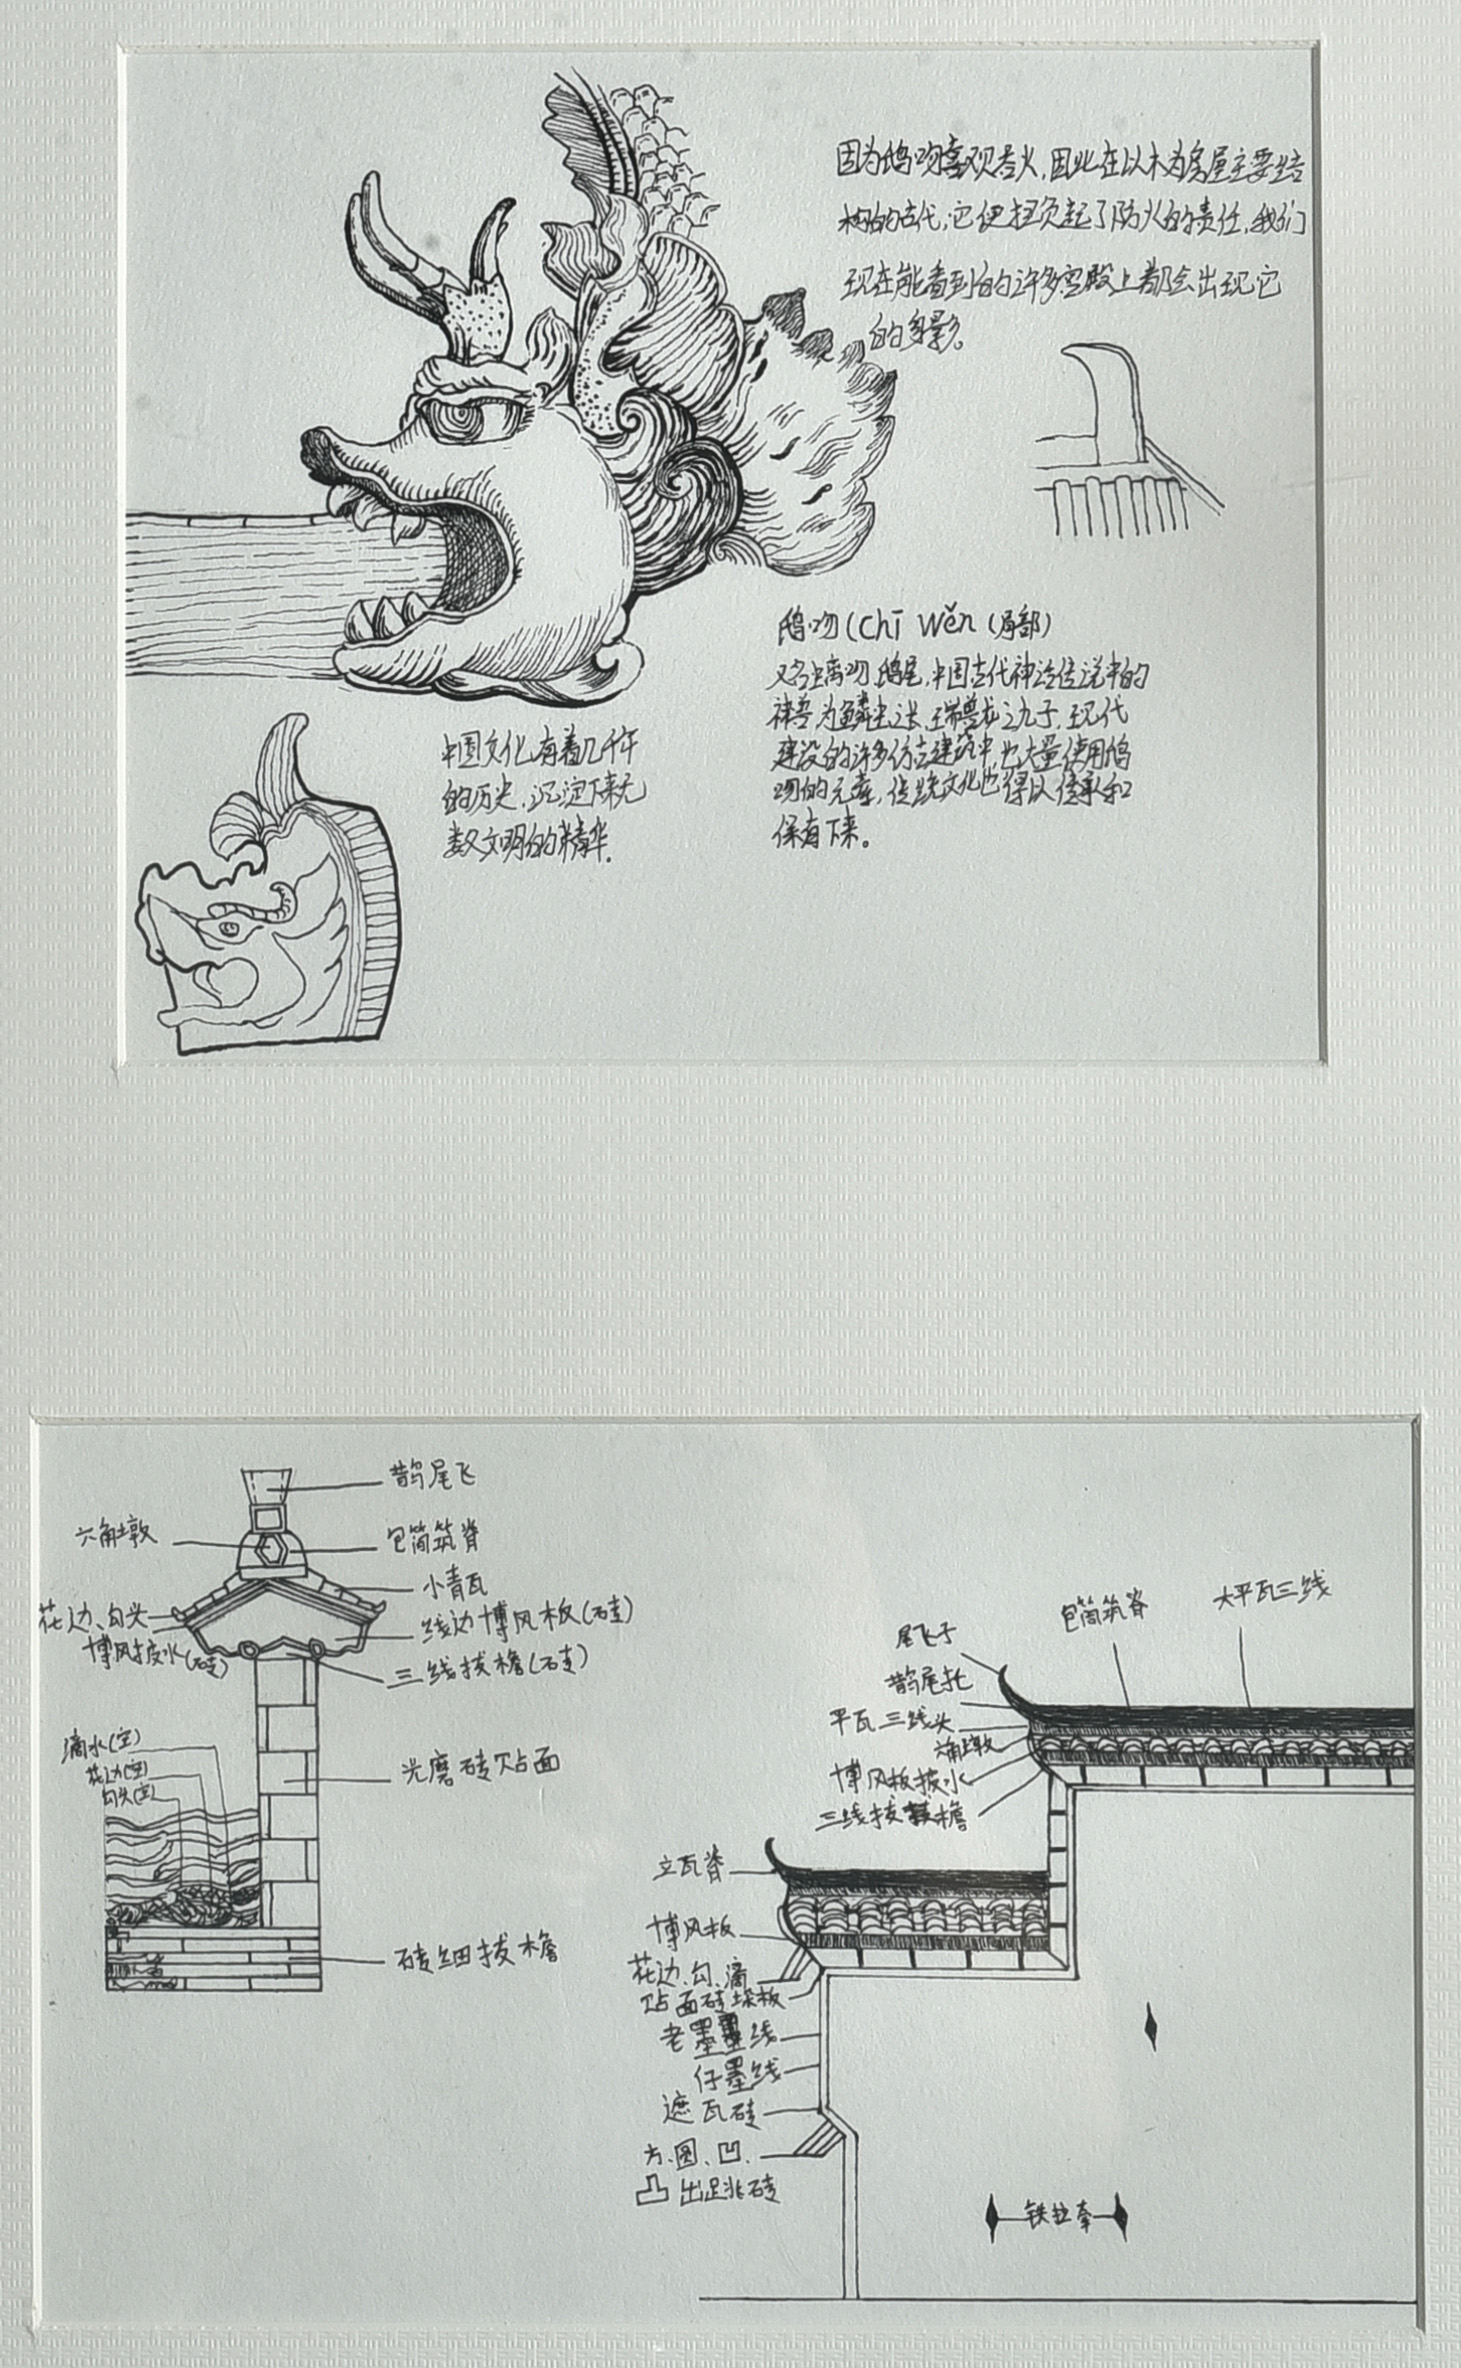 因为鸱吻喜观吞火,因此在以木为房屋主要结
构的古代,它便担负起了防火的责任,我们
现在能看到的许多宫殿上都会出现它
的身影。
鸱吻(Chī Wěn(局部)
又名螭吻,鸱尾,中国古代神话传说中的
神兽为鳞虫之长,瑞兽龙之九子,现代
建设的许多仿古建筑中,也大量使用鸱
吻的元素,传统文化也得以传承和
保有下来。
中国文化有着几千年
的历史,沉淀下来无
数文明的精华.
鹊尾飞
六角墩
包筒筑脊
小青瓦
花边、勾头
线边博风板(砖)
博风披水(砖)
三线拔檐(砖)
滴水(空)
花边(空)
勾头(空)
光磨砖贴面
砖细拔檐
大平瓦三线
包筒筑脊
尾飞子
鹊尾托
平瓦三线头
六角墩
博风板披水
三线拔檐
立瓦脊
博风板
花边、勾、滴
贴面砖垛板
老墨线
仔墨线
遮瓦砖
方.圆、凹.
凸出跳砖
铁拉牵